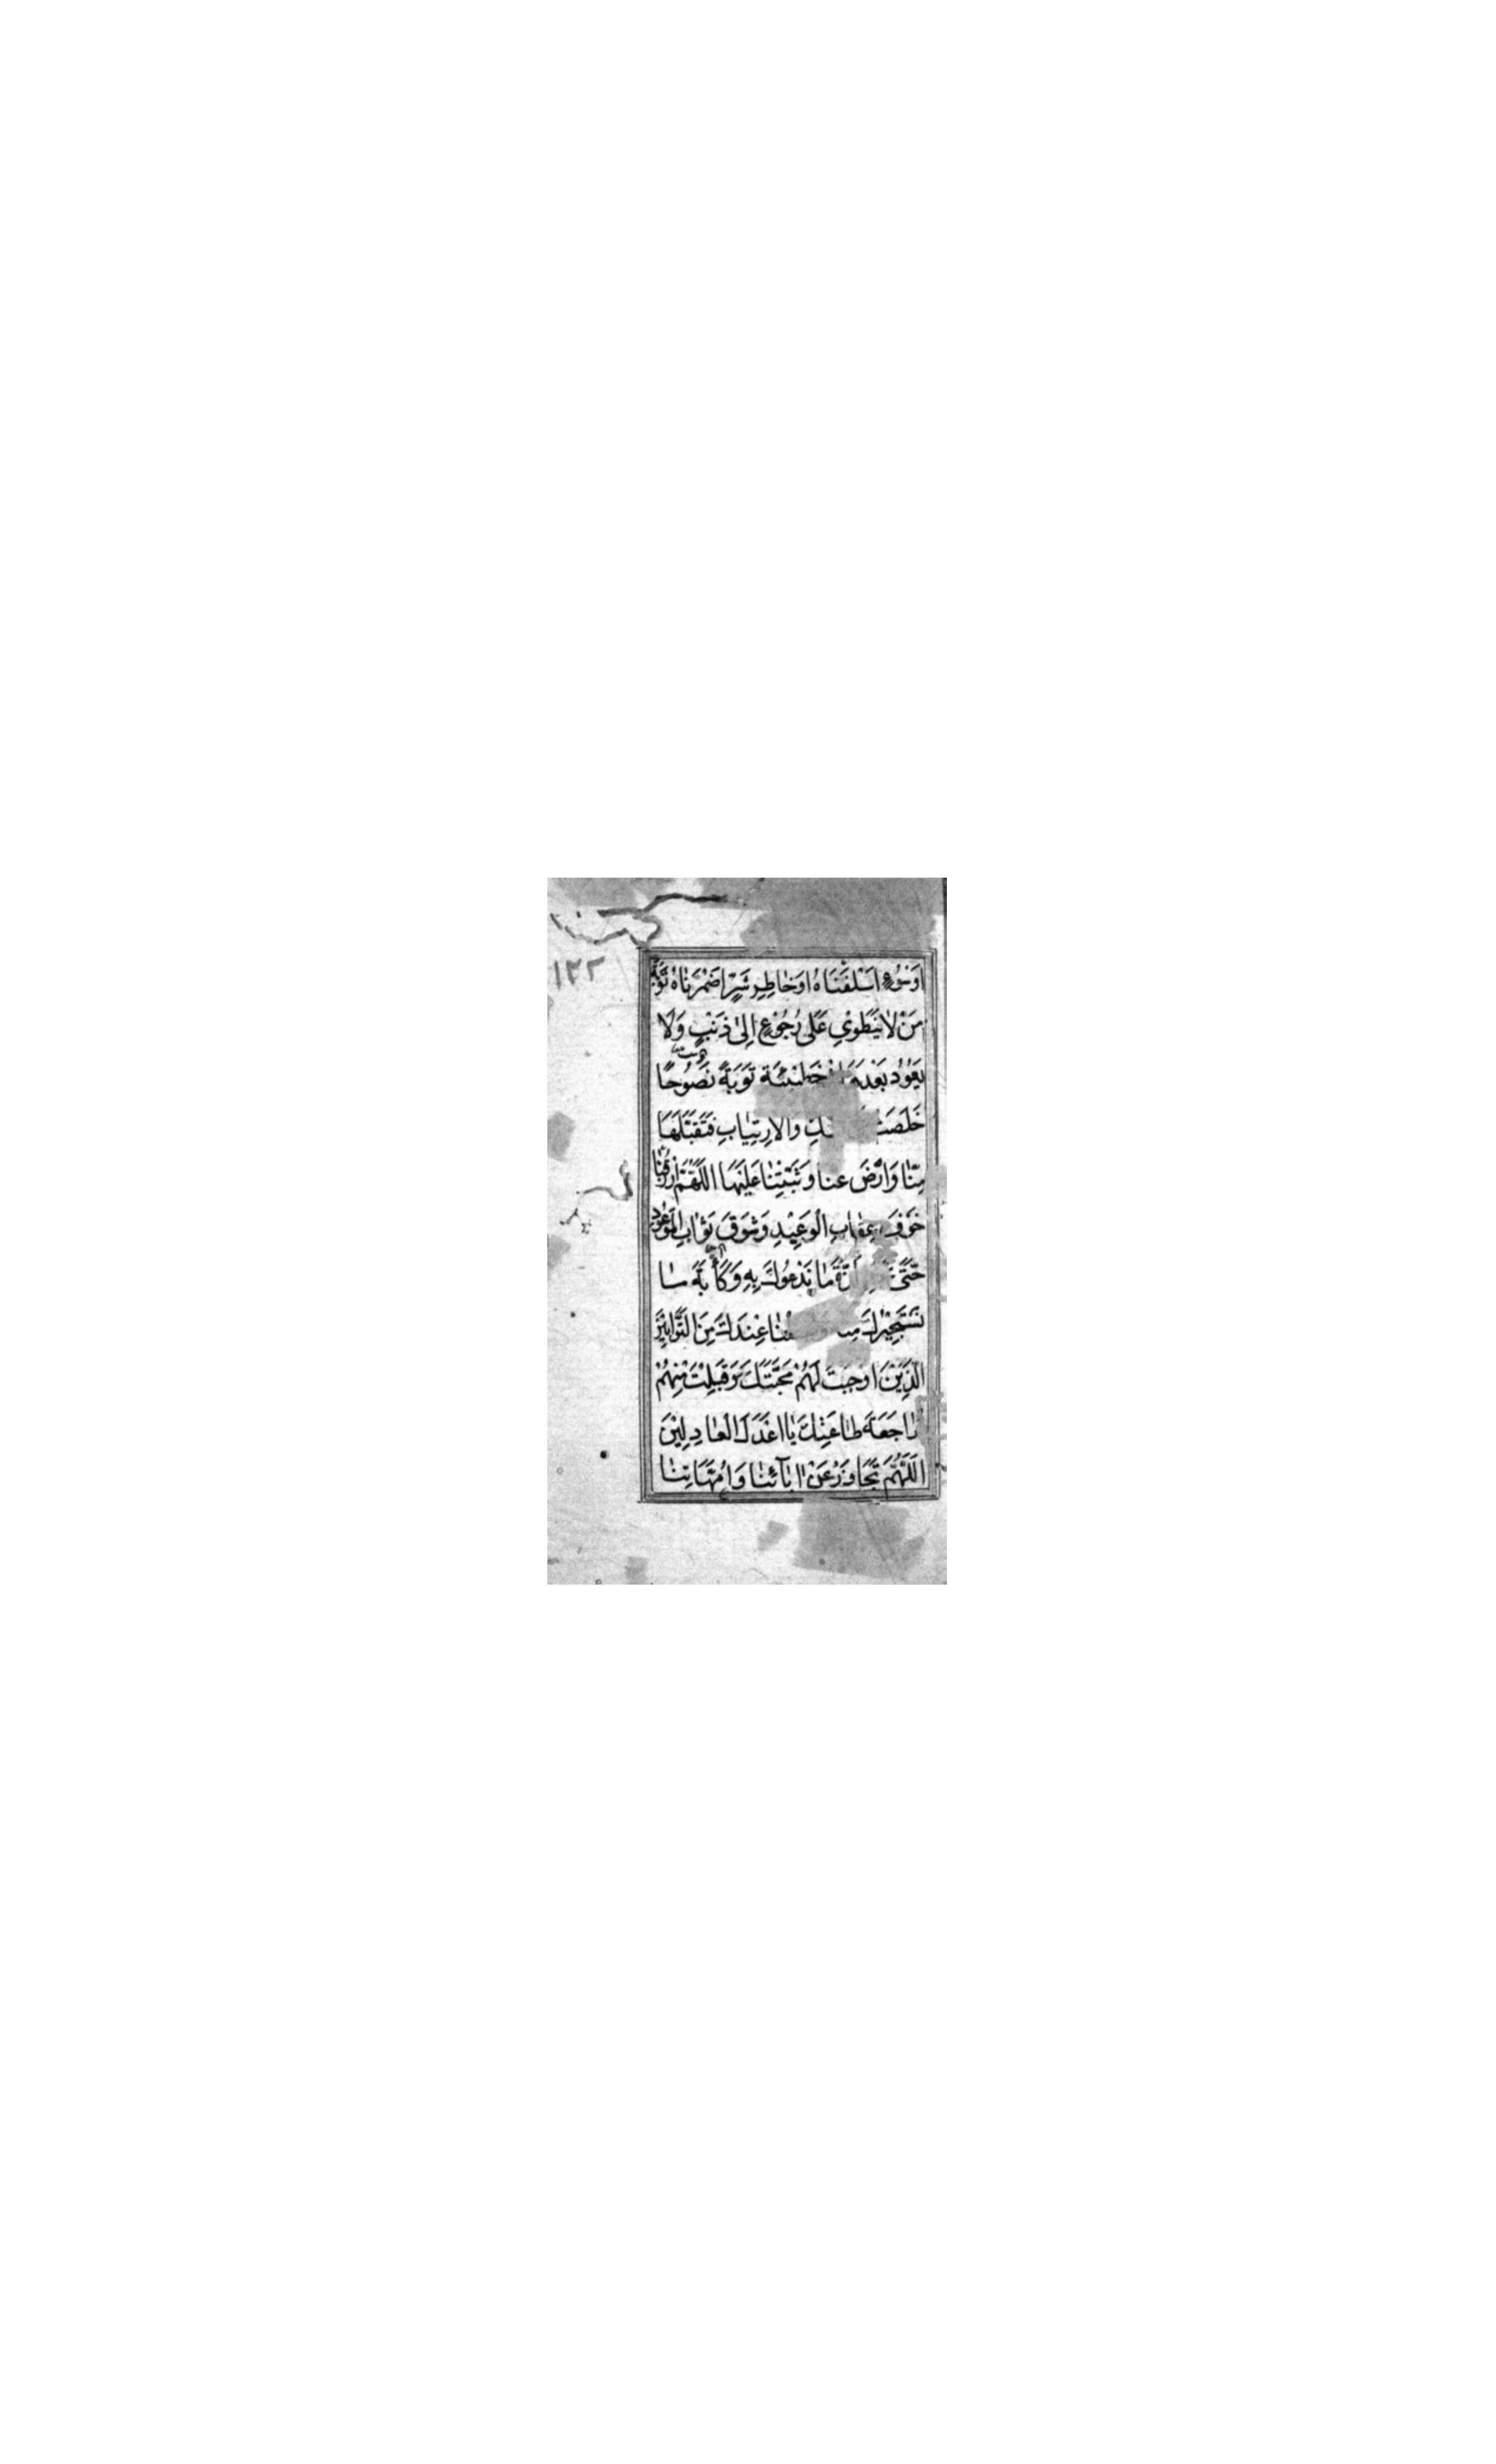 ١٢٢
اَوْسُوْءٍ اَسْلَفْنَاهُ اَوْخٰاطِرِ شَرٍّ اَضْمَرْنٰاهُ تَوْبَةَ
مَنْ لاٰ يَنْطَوِيْ عَلٰى رُجُوْعٍ اِلىٰ ذَنْبٍ وَلاٰ
يَعُوْدُ بَعْدَهَا خَطِيْئَةٍ تَوْبَةً نَصُوْحًا
خَلَصَتْ وَالْاِرْتِيٰابِ فَتَقَبَّلْهَا
مِنّٰا وَارْضَ عَنّا وَثَبِّتْنٰا عَلَيْهَا اَللّٰهُمَّ ارْزُقْنٰا
خَوْفَ عِقٰابِ الْوَعِيْدِ وَشَوْقَ ثَوٰابِ الْمَوْعُوْدِ
حَتّٰى مٰا نَدْعُوْكَ بِهِ وَكَاٰبَةَ مٰا
نَسْتَجِيْرُكَ عِنْدَكَ مِنَ التَّوّٰابِيْنَ
الَّذِيْنَ اَوْجَبْتَ لَهُمْ مَحَبَّتَكَ وَقَبِلْتَ مِنْهُمْ
مُرٰاجَعَةَ طٰاعَتِكَ يٰا اَعْدَلَ الْعٰادِلِيْنَ
اَللّٰهُمَّ تَجَاوَزْ عَنْ اٰبٰآئِنٰا وَاُمَّهَاتِنٰا